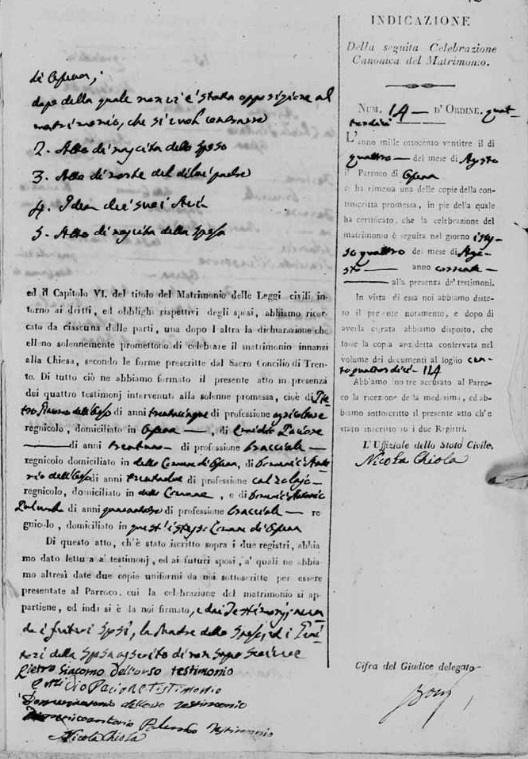 di Ofena;
dopo della quale non vi è stata opposizione al
matrimonio, che si vuol contrarre
2. Atto di nascita dello sposo
3. Atto di morte del di lui padre
4. Idem dei suoi Avi
5. Atto di nascita della sposa
ed il Capitolo VI. del titolo del Matrimonio delle Leggi civili in-
torno ai dritti, ed obblighi rispettivi degli sposi, abbiamo ricer-
cato da ciascuna delle parti, una dopo l'altra la dichiarazione che
elleno solennemente promettono di celebrare il matrimonio innanzi
alla Chiesa, secondo le forme prescritte dal Sacro Concilio di Tren-
to. Di tutto ciò ne abbiamo formato il presente atto in presenza
dei quattro testimonj intervenuti alla solenne promessa, cioè di Pie-
tro Giacomo dell'Orso di anni trentacinque di professione agricoltore
regnicolo, domiciliato in Ofena di Emidio Pacione
di anni di professione Bracciale
regnicolo domiciliato in detto Comune di Ofena, di Domenic'Anto-
nio dell'Orso di anni di professione calzolajo
regnicolo, domiciliato in detto Comune, e di Domenic'Antonio
Palumbo di anni quarantotto di professione Bracciale re-
gnicolo, domiciliato in quest'istesso Comune di Ofena
Di questo atto, ch'è stato iscritto sopra i due registri, abbia-
mo dato lettura a' testimonj, ed ai futuri sposi, a' quali ne abbia-
mo altresì date due copie uniformi da noi sottoscritte per essere
presentate al Parroco, cui la celebrazione del matrimonio si ap-
partiene, ed indi si è la noi firmato, e dai Testimonj, avendo
i futuri Sposi, la Madre dello Sposo, ed i Geni-
tori della Sposa asserito di non saper scrivere
Pietro Giacomo Dell'orso testimonio
Emidio Pacione Testimonio
Domenicantonio dell'orso testimonio
Domenicoantonio Palumbo Testimonio
Nicola Chiola
INDICAZIONE
Della seguita Celebrazione
Canonica del Matrimonio.
NUM. 14 D'ORDINE, quat-
tordici
L'anno mille ottocento ventitre il dì
quattro del mese di Agosto
il Parroco di Ofena
ci ha rimessa una delle copie della con-
troscritta promessa, in piè della quale
ha certificato, che la celebrazione del
matrimonio è seguita nel giorno istes-
so quattro del mese di Ago-
sto anno corrente
alla presenza de' testimonj.
In vista di essa noi abbiamo diste-
so il presente notamento, e dopo di
averla cifrata abbiamo disposto, che
fosse la copia anzidetta conservata nel
volume dei documenti al foglio cen-
toquattordici 114
Abbiamo inoltre accusato al Parro-
co la ricezione della medesima, ed ab-
biamo sottoscritto il presente atto ch'è
stato inscritto su i due Registri.
L'Uffiziale dello Stato Civile.
Nicola Chiola
Cifra del Giudice delegato